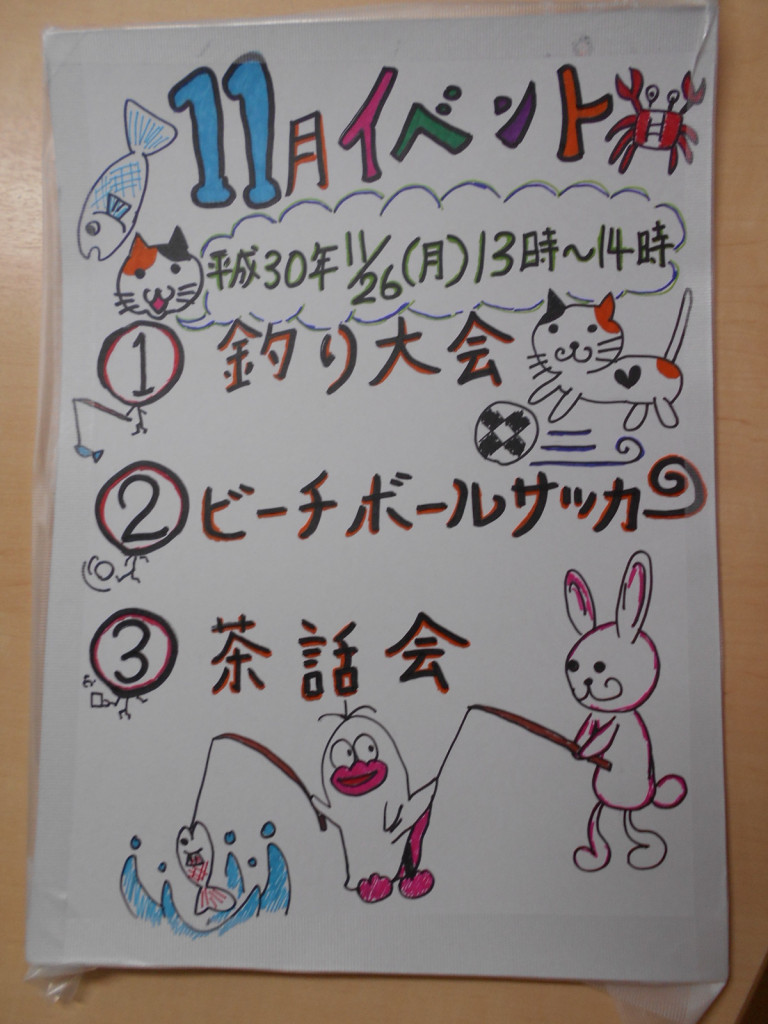 11月イベント
平成30年11/26(月)13時～14時
① 釣り大会
② ビーチボールサッカー
③ 茶話会